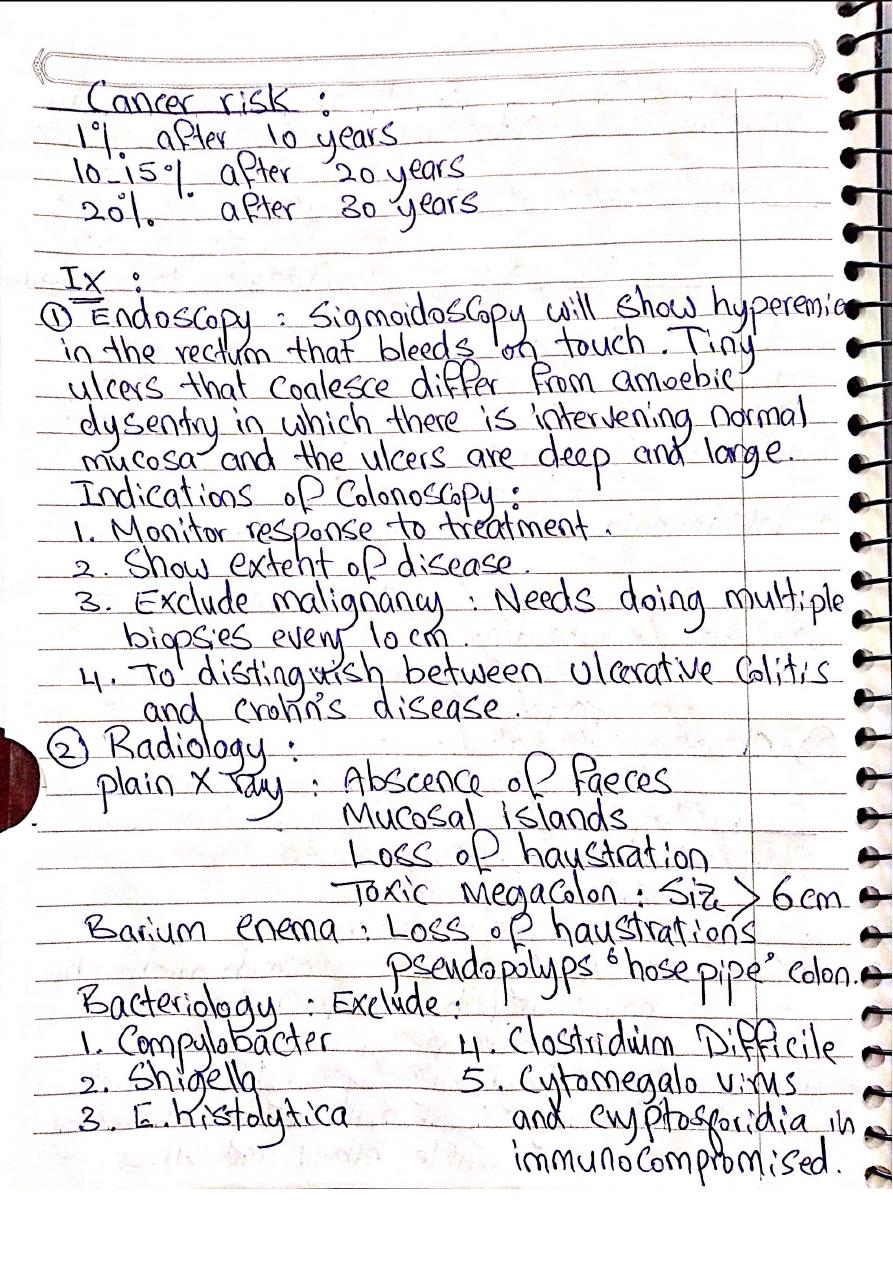 Cancer risk :
1% after 10 years
10-15% after 20 years
20% after 30 years
Ix :
① Endoscopy : Sigmoidoscopy will show hyperemic
in the rectum that bleeds on touch. Tiny
ulcers that coalesce differ from amoebic
dysentry in which there is intervening normal
mucosa and the ulcers are deep and large.
Indications of Colonoscopy :
1. Monitor response to treatment.
2. Show extent of disease.
3. Exclude malignancy : Needs doing multiple
biopsies every 10 cm
4. To distinguish between Ulcerative Colitis
and crohn's disease.
② Radiology :
plain X ray : Abscence of faeces
Mucosal islands
Loss of haustration
Toxic Megacolon : Size > 6 cm
Barium enema : Loss of haustrations
pseudopolyps "hose pipe" colon.
Bacteriology : Exclude :
1. Compylobacter 4. Clostridium Difficile
2. Shigella 5. Cytomegalo virus
3. E. histolytica and cryptosporidia in
immunocompromised.